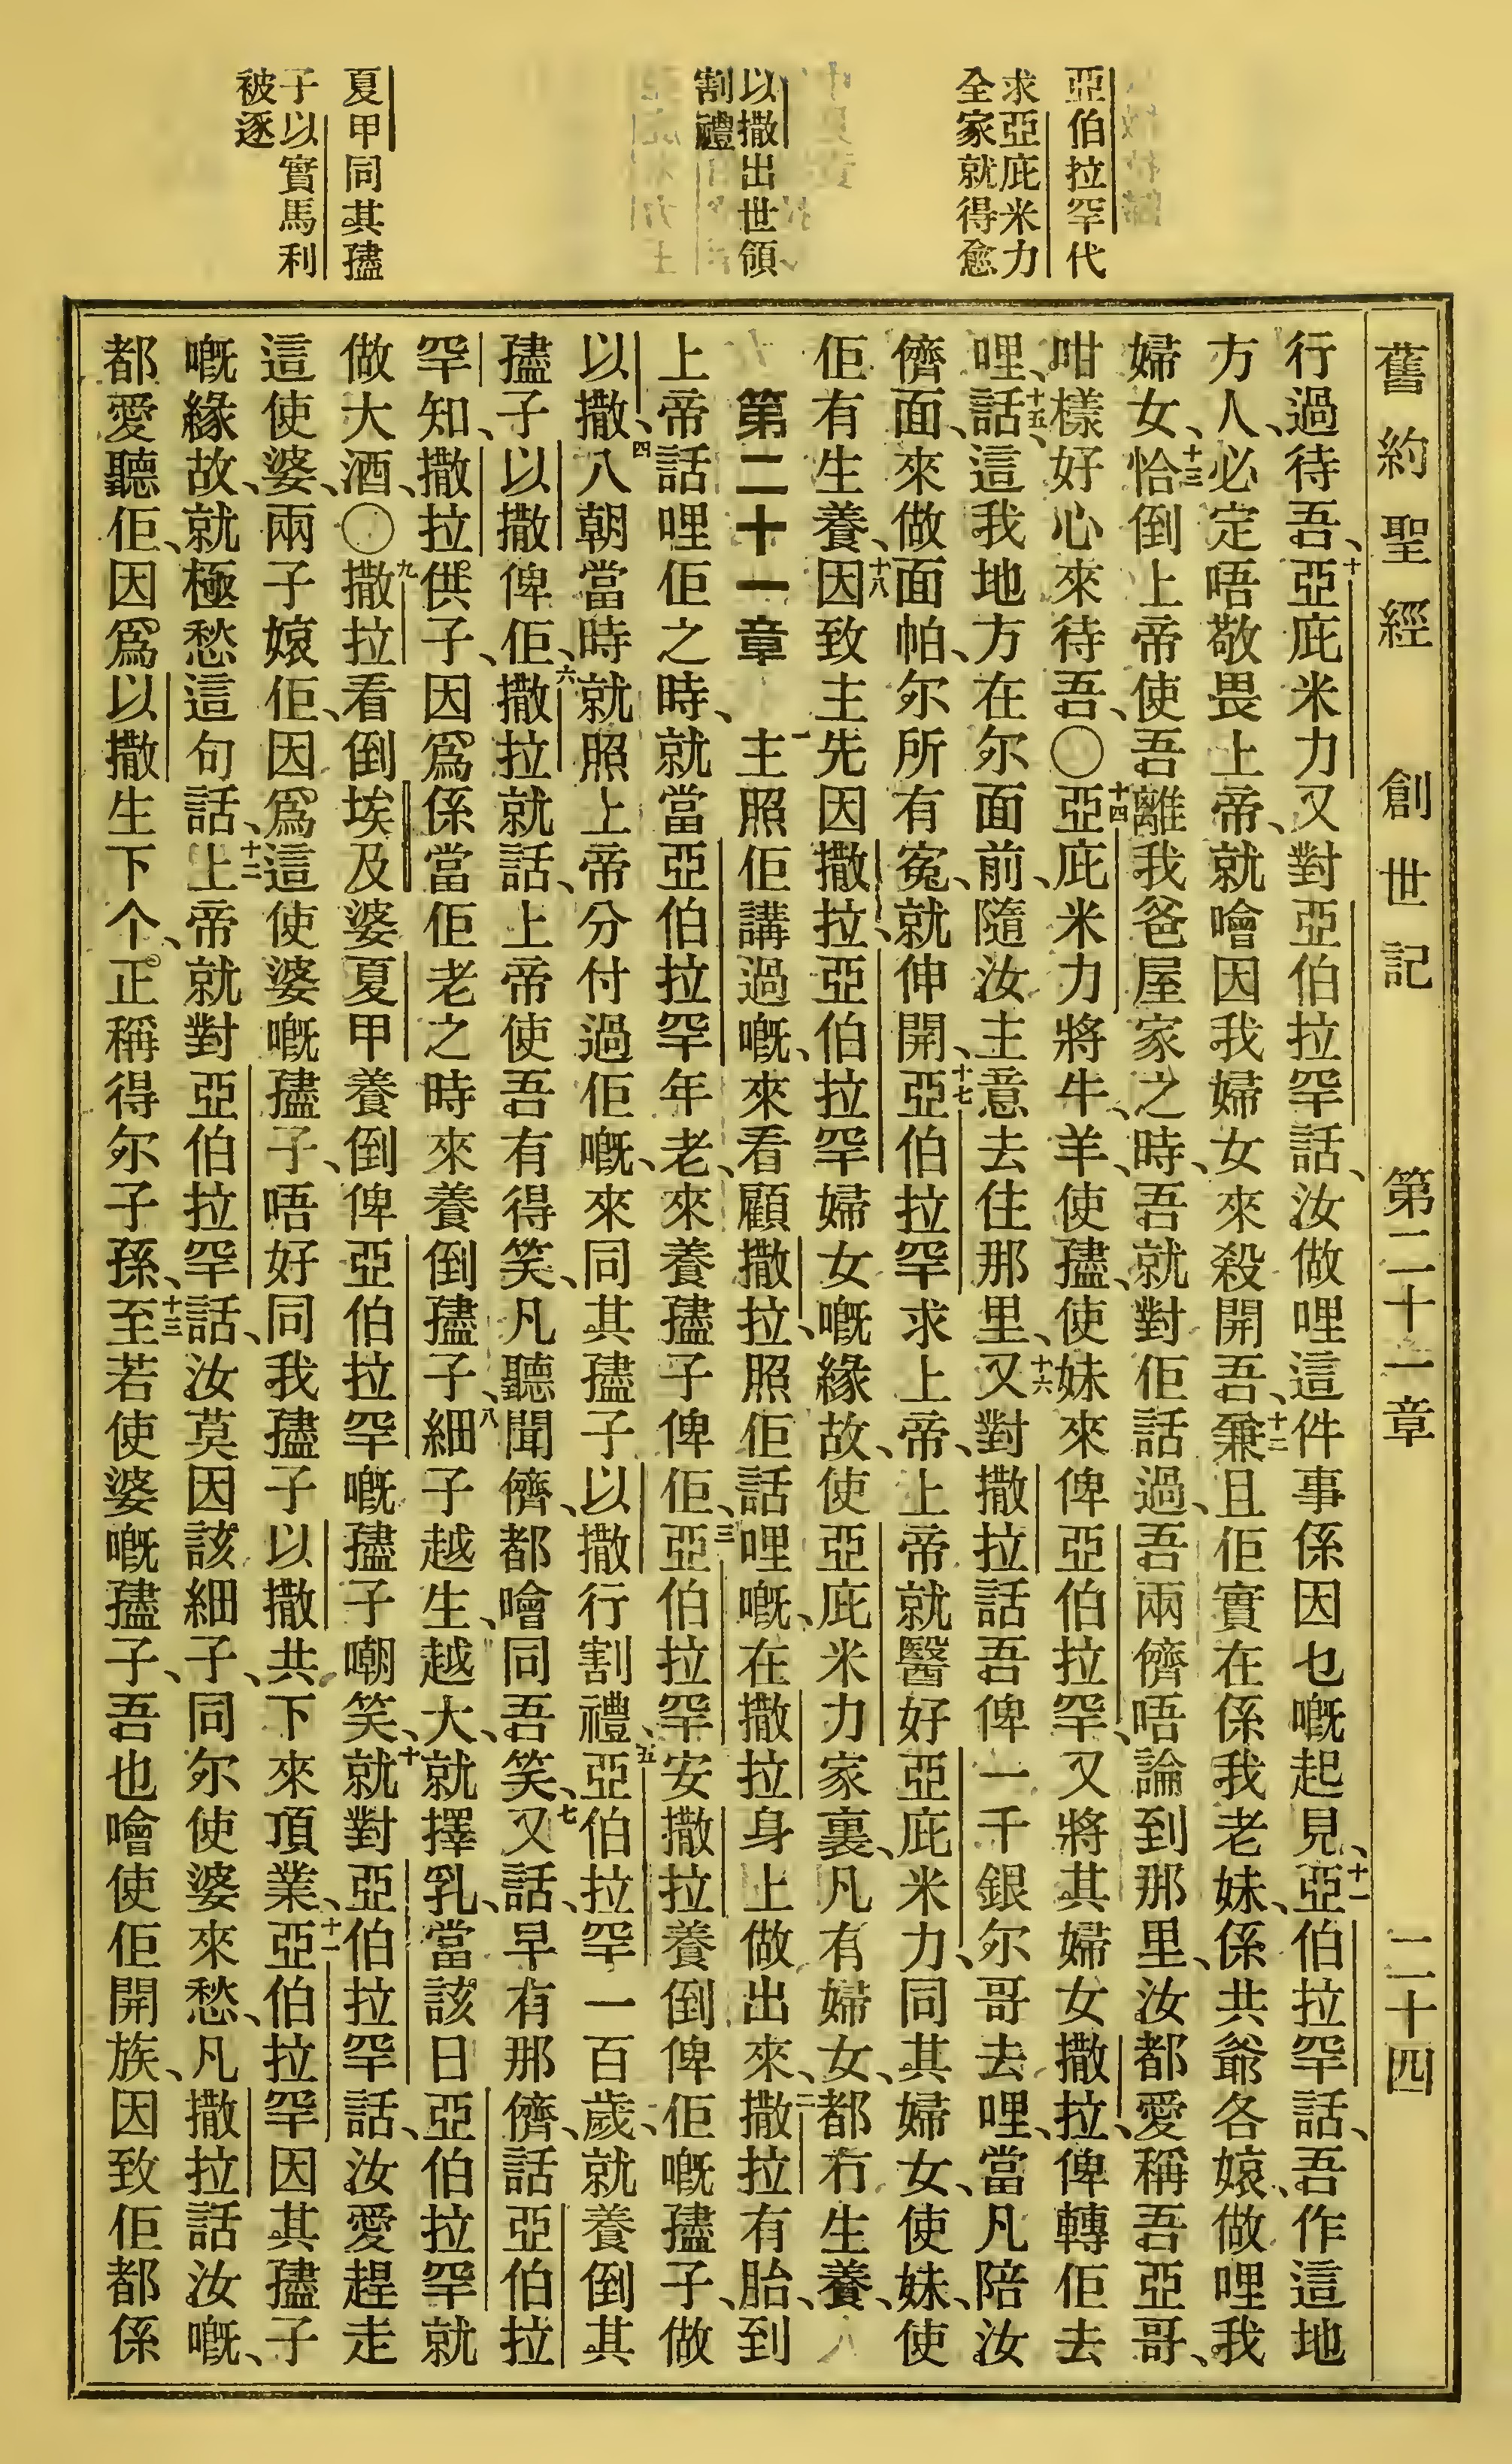 亞伯拉罕代
求亞庇米力
全家就得愈
以撒出世領
割禮
夏甲同其𡥧
子以實馬利
被逐
舊約聖經 創世記 第二十一章 二十四
行過待吾、十亞庇米力又對亞伯拉罕話、汝做哩這件事係因乜嘅起見、十一亞伯拉罕話、吾作這地
方人、必定唔敬畏上帝、就噲因我婦女來殺開吾、十二兼且佢實在係我老妹、係共爺各娘、做哩我
婦女、十三恰倒上帝使吾離我爸屋家之時、吾就對佢話過、吾兩儕唔論到那里、汝都愛稱吾亞哥、
咁樣好心來待吾、〇十四亞庇米力將牛、羊、使𡥧、使妹來俾亞伯拉罕、又將其婦女撒拉、俾轉佢去
哩、十五話、這我地方在尔面前、隨汝主意去住那里、十六又對撒拉話吾俾一千銀尔哥去哩、當凡陪汝
儕面、來做面帕、尔所有寃、就伸開、十七亞伯拉罕求上帝、上帝就醫好亞庇米力、同其婦女、使妹、使
佢有生養、十八因致主先因撒拉、亞伯拉罕婦女嘅緣故、使亞庇米力家裏、凡有婦女、都冇生養、
第二十一章 一主照佢講過嘅、來看顧撒拉、照佢話哩嘅、在撒拉身上做出來、二撒拉有胎、到
上帝話哩佢之時、就當亞伯拉罕年老、來養𡥧子俾佢、三亞伯拉罕安撒拉養倒俾佢嘅𡥧子、做
以撒、四八朝當時就照上帝分付過佢嘅、來同其𡥧子以撒行割禮、五亞伯拉罕一百歲、就養倒其
𡥧子以撒俾佢、六撒拉就話、上帝使吾有得笑、凡聽聞儕、都噲同吾笑、七又話、早有那儕、話亞伯拉
罕知、撒拉供子、因爲係當佢老之時來養倒𡥧子、八細子越生、越大、就擇乳、當該日亞伯拉罕就
做大酒、〇九撒拉看倒埃及婆夏甲養倒俾亞伯拉罕嘅𡥧子嘲笑、十就對亞伯拉罕話、汝愛趕走
這使婆、兩子娘佢、因爲這使婆嘅𡥧子、唔好同我𡥧子以撒、共下來頂業、十一亞伯拉罕因其𡥧子
嘅緣故、就極愁這句話、十二上帝就對亞伯拉罕話、汝莫因該細子、同尔使婆來愁、凡撒拉話汝嘅、
都愛聽佢、因爲以撒生下个、正稱得尔子孫、十三至若使婆嘅𡥧子、吾也噲使佢開族、因致佢都係